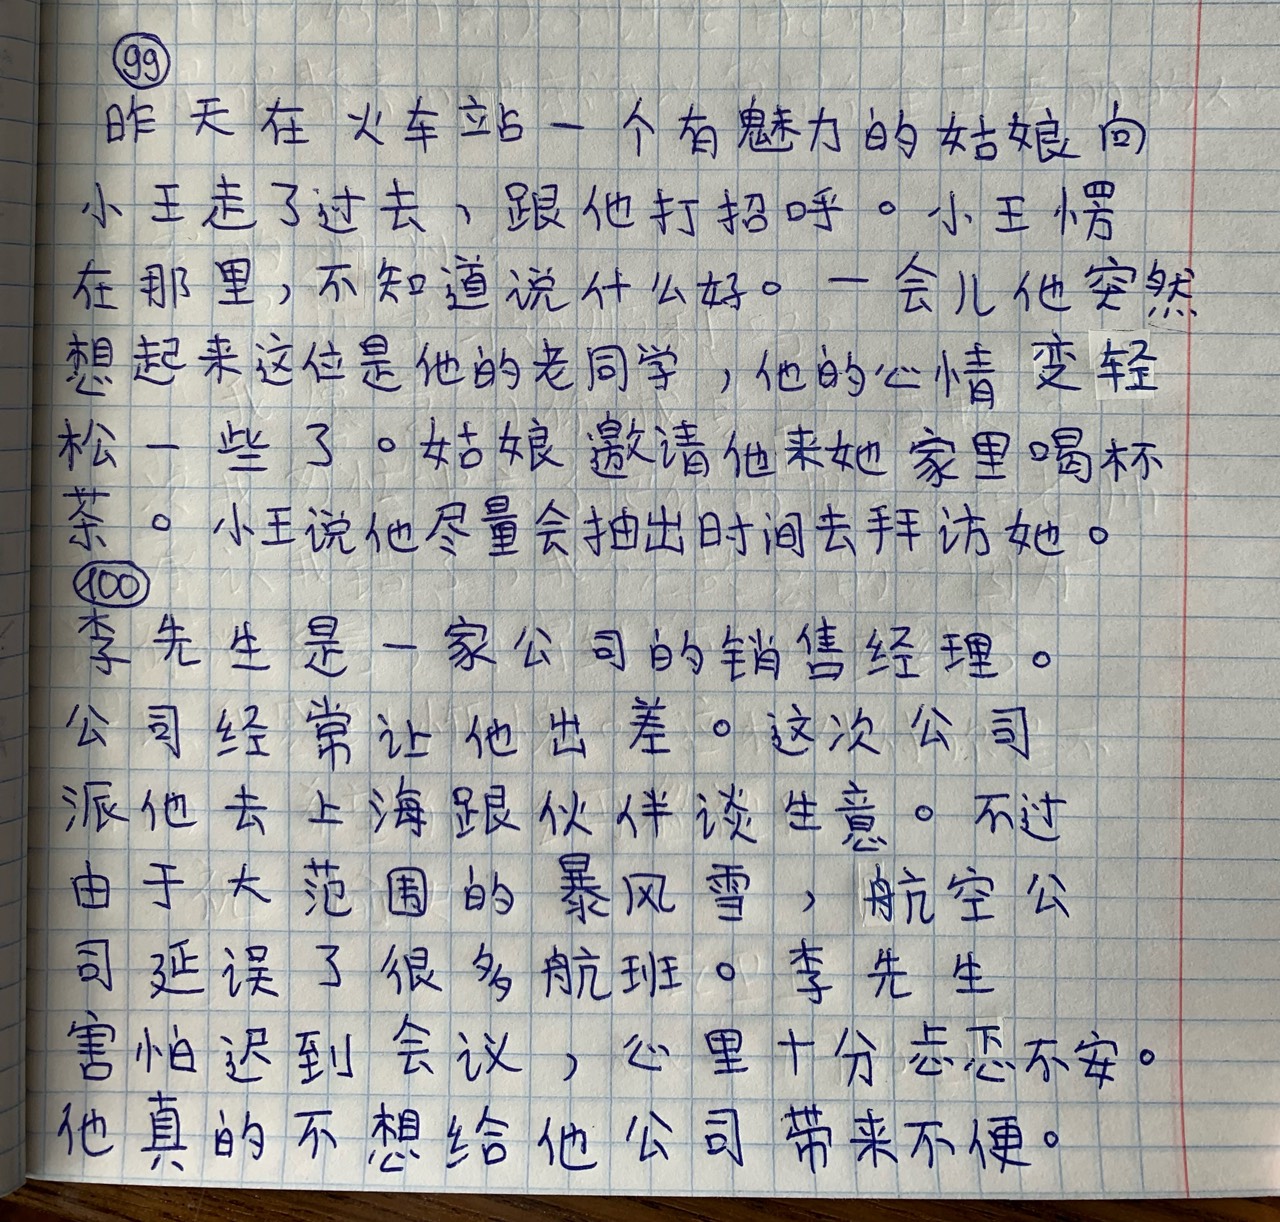 99
昨天在火车站一个有魅力的姑娘向
小王走了过去、跟他打招呼。小王愣
在那里,不知道说什么好。一会儿他突然
想起来这位是他的老同学,他的心情变轻
松一些了。姑娘邀请他来她家里喝杯
茶。小王说他尽量会抽出时间去拜访她。
100
李先生是一家公司的销售经理。
公司经常让他出差。这次公司
派他去上海跟伙伴谈生意。不过
由于大范围的暴风雪,航空公
司延误了很多航班。李先生
害怕迟到会议,心里十分忐忑不安。
他真的不想给他公司带来不便。